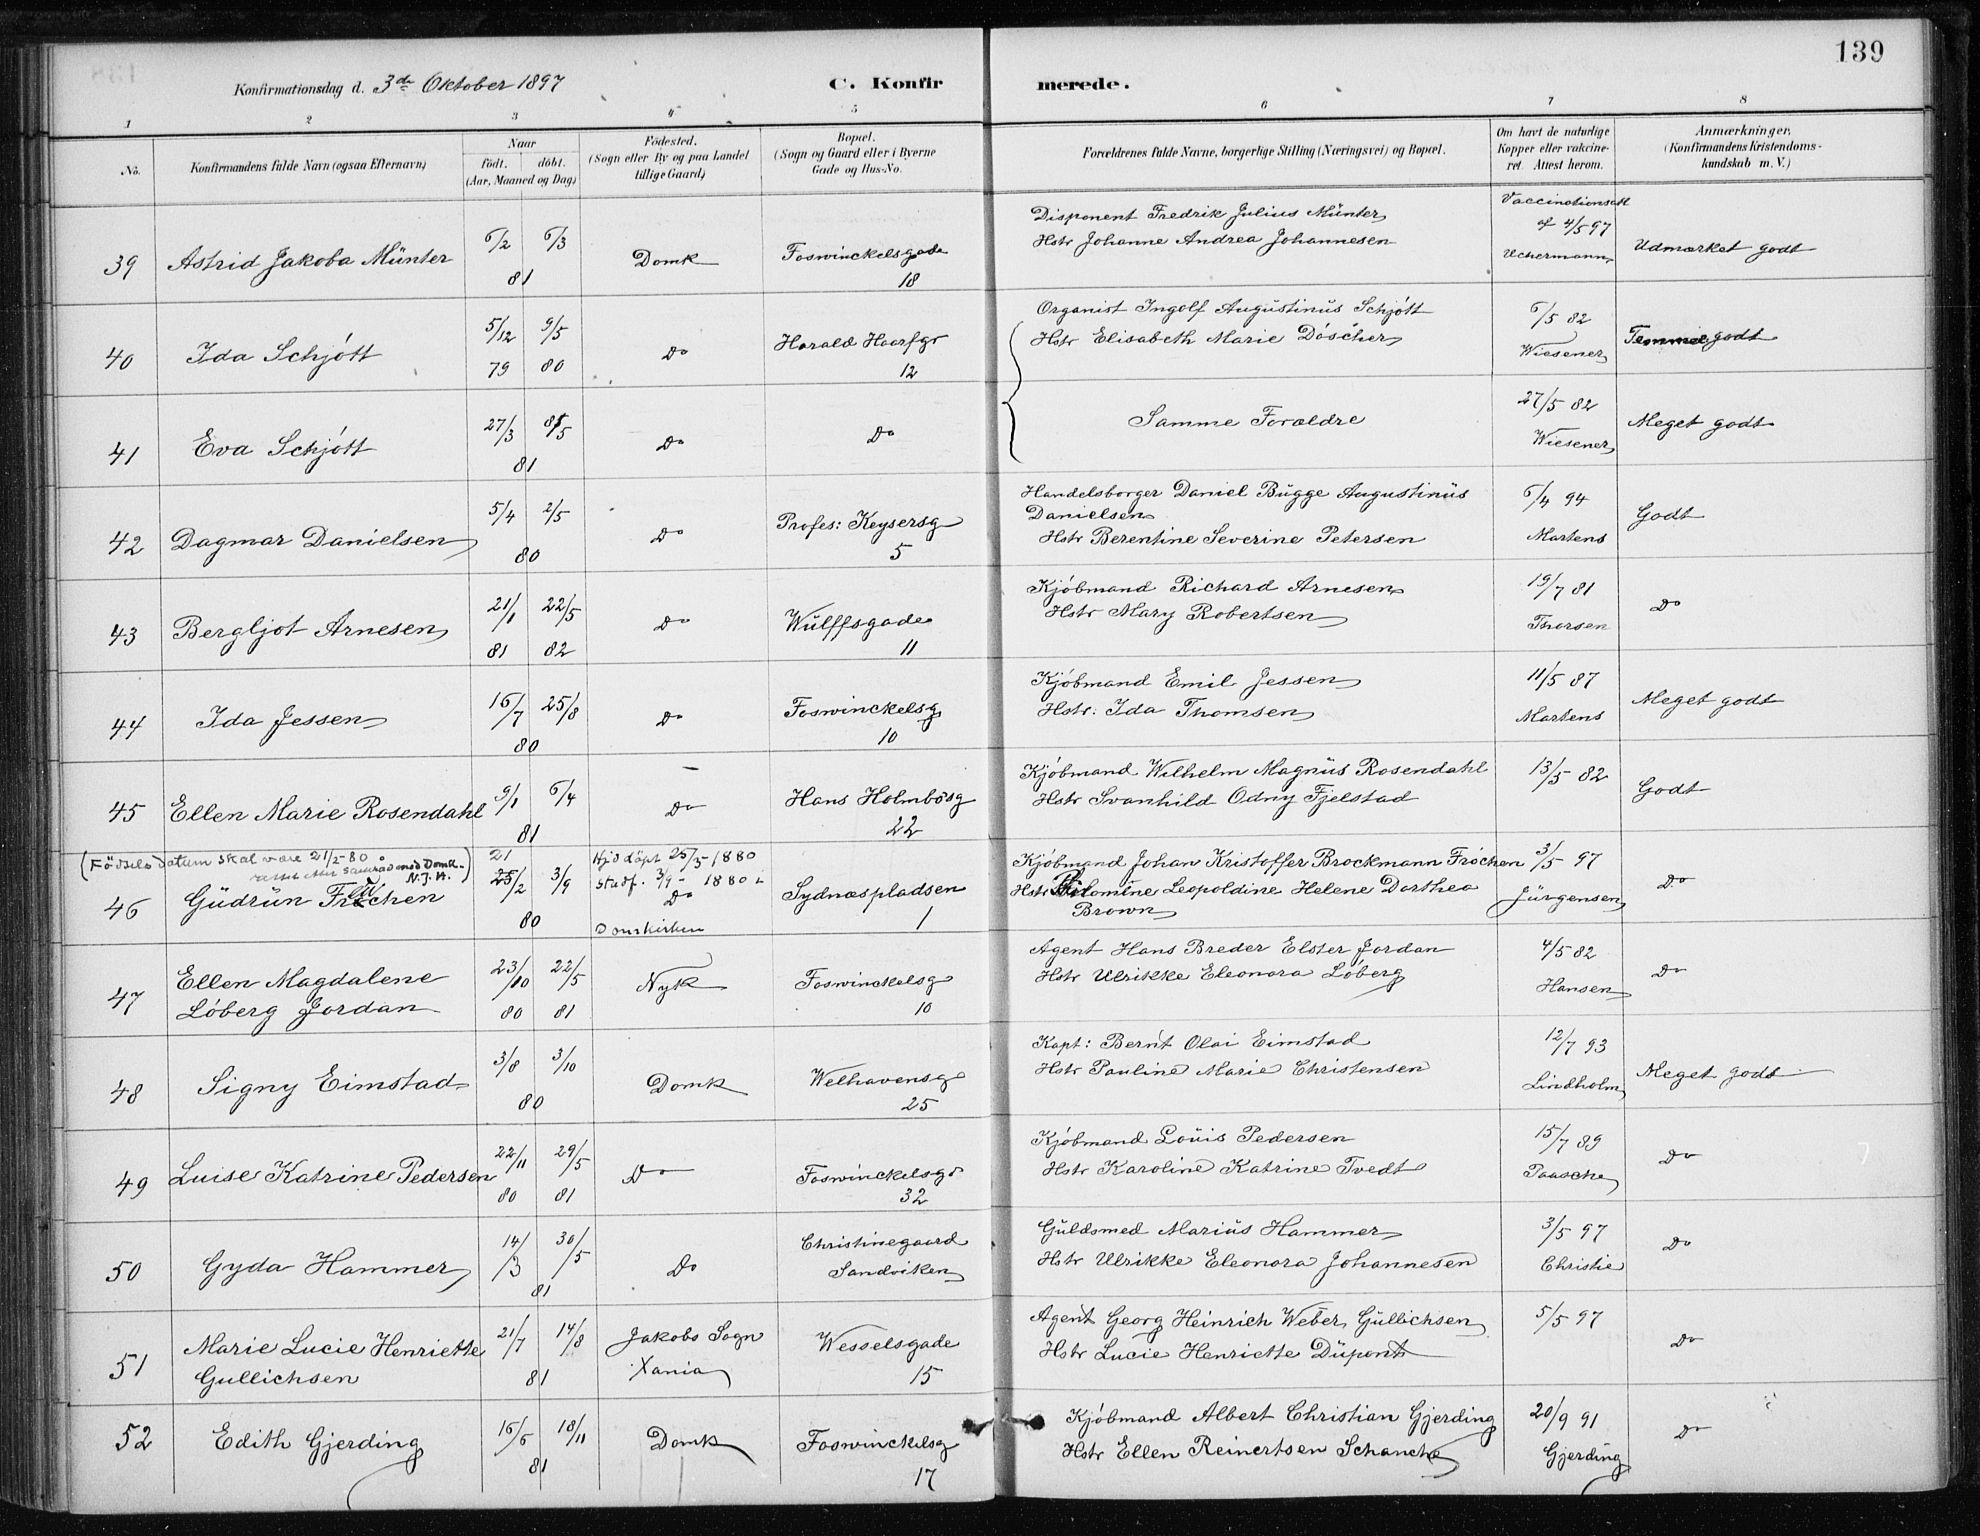 139
Konfirmationsdag d. 3de Oktober 1897
C. Konfir merede.
1 2 3 4 5 6 7 8
No.
Konfirmandens fulde Navn (ogsaa Efternavn)
Naar
født. døbt.
(Aar, Maaned og Dag)
Fødested.
(Sogn eller By og paa Landet
tillige Gaard)
Bopæl.
(Sogn og Gaard eller i Byerne
Gade og Hus-No.
Forældrenes fulde Navne, borgerlige Stilling (Næringsvei) og Bopæl.
Om havt de naturlige
Kopper eller vakcine-
ret. Attest herom.
Anmærkninger.
(Konfirmandens Kristendoms-
kundskab m. V.)
39 Astrid Jakoba Münter 6/2 6/3 81 Domk Foswinckelsgade 18
Disponent Fredrik Julius Münter
Hstr Johanne Andrea Johannesen
Vaccinationsatt
af 4/5 97
Uchermann
Udmærket godt
40 Ida Schjött 5/12 79 9/5 80 Do Harald Haarfgr 12
Organist Ingolf Augustinus Schjött
Hstr Elisabeth Marie Döscher
6/5 82
Wiesener
Temmel godt
41 Eva Schjött 27/3 8/5 81 Do Do
Samme Forældre
27/5 82
Wiesener
Meget godt
42 Dagmar Danielsen 5/4 2/5 80 Do Profes: Keysersg 5
Handelsborger Daniel Bügge Augustinüs
Danielsen
Hstr Berentine Severine Petersen
6/4 94
Martens
Godt
43 Bergljot Arnesen 21/1 81 22/5 82 Do Wülffsgade 11
Kjöbmand Richard Arnesen
Hstr Mary Robertsen
19/7 81
Thorsen
Do
44 Ida Jessen 16/7 25/8 80 Do Foswinckelsg 10
Kjöbmand Emil Jessen
Hstr. Ida Thomsen
11/5 87
Martens
Meget godt
45 Ellen Marie Rosendahl 9/1 6/4 81 Do Hans Holmbösg 22
Kjöbmand Wilhelm Magnüs Rosendahl
Hstr Svanhild Odny Fjelstad
13/5 82
Godt
(Födselsdatum skal være 21/2-80
rettet etter samraad med Domk.
N.J.H.)
Hjd döpt 25/3-1880
stadf. 3/9-1880 i
Domkirken
46 Güdrün Fröchen 21 25/2 3/9 80 Do Sydnæspladsen 1
Kjöbmand Johan Kristoffer Brockmann Fröchen
Hstr Filomine Leopoldine Helene Dorthea
Brown
3/5 97
Jürgensen
Do
47 Ellen Magdalene
Löberg Jordan 23/10 80 22/5 81 Nyk Foswinckelsg 10
Agent Hans Breder Elster Jordan
Hstr Ulrikke Eleonora Löberg
4/5 82
Hansen
Do
48 Signy Eimstad 3/8 3/10 80 Domk Welhavensg 25
Kapt: Bernt Olai Eimstad
Hstr Pauline Marie Christensen
12/7 93
Lindholm
Meget godt
49 Luise Katrine Pedersen 22/11 80 29/5 81 Do Foswinckelsg 32
Kjöbmand Loüis Pedersen
Hstr Karoline Katrine Tvedt
15/7 89
Paasche
Do
50 Gyda Hammer 14/3 30/5 81 Do Christinegaard
Sandviken
Güldsmed Mariüs Hammer
Hstr Ulrikke Eleonora Johannesen
3/5 97
Christie
Do
51 Marie Lucie Henriette
Gullichsen 21/7 14/8 81 Jakobs Sogn
Xania Wesselsgade 15
Agent Georg Heinrich Weber Gullichsen
Hstr Lucie Henriette Düpont
5/5 97
Do
52 Edith Gjerding 16/6 18/11 81 Domk Foswinckelsg 17
Kjöbmand Albert Christian Gjerding
Hstr Ellen Reinertsen Schanche
20/9 91
Gjerding
Do